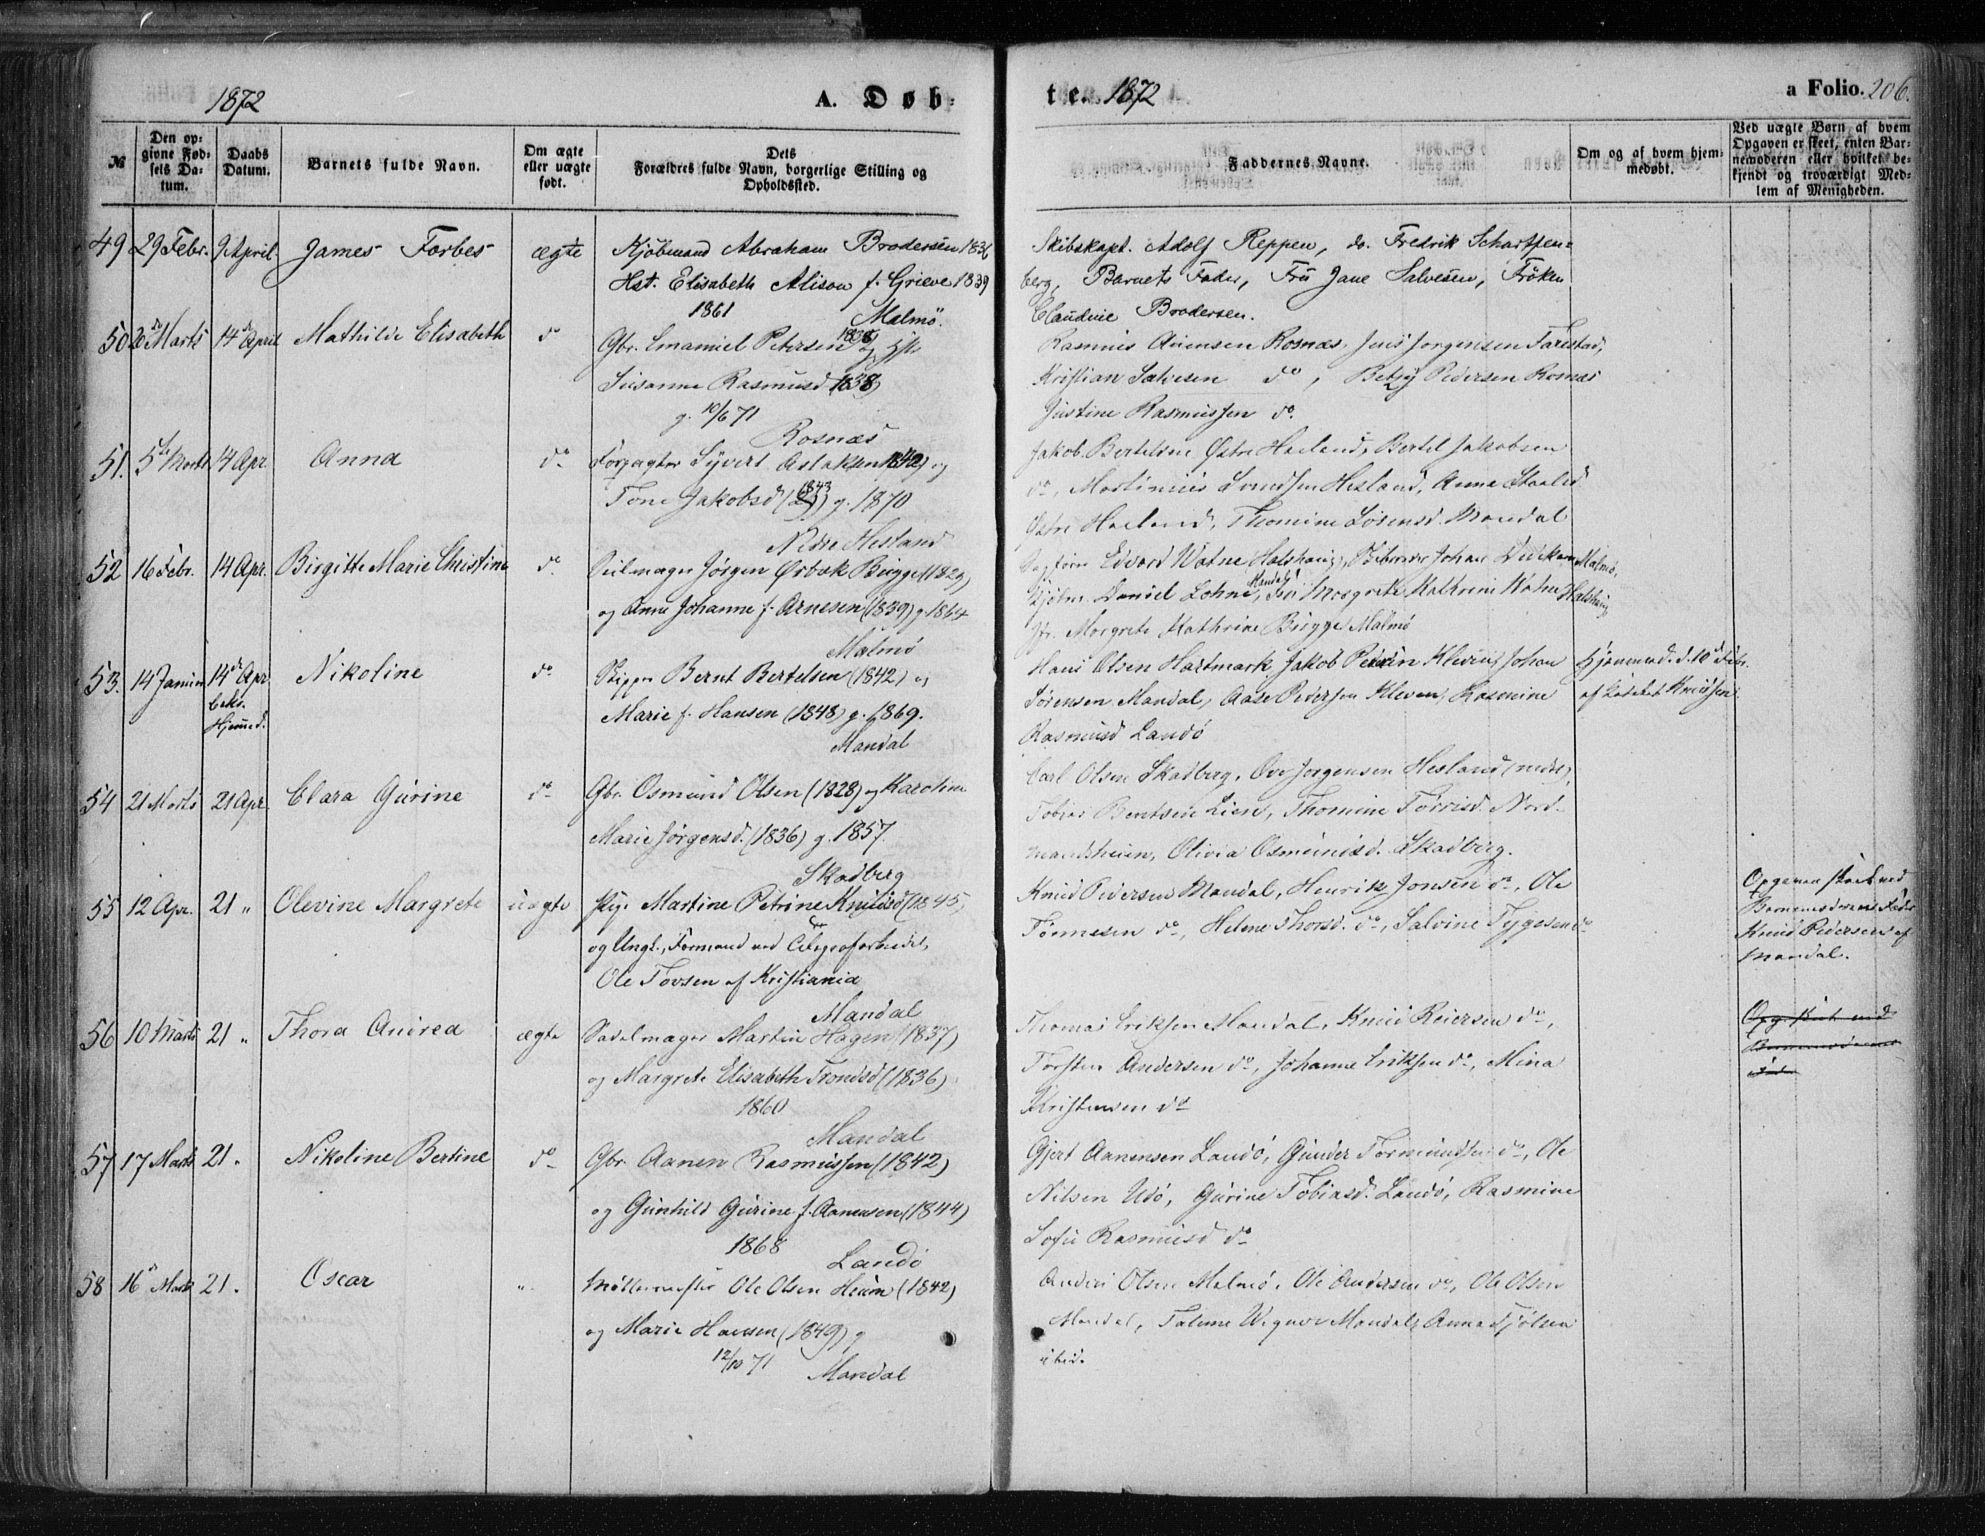 1872
A. Døb=
te. 1872
a Folio. 206.
№
Den op=
givne Fød=
sels Da=
tum.
Daabs
Datum.
Barnets fulde Navn.
Om ægte
eller uægte
født.
Dets
Forældres fulde Navn, borgerlige Stilling og
Opholdssted.
Faddernes Navne.
Om og af hvem hjem=
medøbt.
Ved uægte Børn af hvem
Opgaven er skeet, enten Bar=
nemoderen eller hvilket be=
kjendt og troværdigt Med=
lem af Menigheden.
49 29 Febr. 9 April. James Forbes ægte Kjøbmand Abraham Brodersen 1836
Hst. Elisabeth Alison f. Grieve 1839
1861 Malmö.
Skibskapt. Adolf Reppen, do. Fredrik Scharffen=
berg, Barnets Fader, Fru Jane Salvesen, Frøken
Claudine Brodersen.
50 20de Marts 14de April Mathilde Elisabeth do Gbr. Emanuel Petersen 1838 og Hst.
Susanne Rasmusd (1838)
g. 10/6 71
Rosnæs
Rasmus Rosnæs, Jens Jørgensen Farestad,
Kristian Salvesen do, Betsy Pedersen Rosnæs
Justine Rasmussen do.
51. 5te Marts 14 Apr. Anna do Forpagter Syvert Aslaksen (1842) og
Tone Jakobsd (1843) g. 1870
Nedre Hesland
Jakob Bertelsen Østre Haaland, Bertel Jakobsen
do, Martinius Svendsen Hesland, Anna
Østre Haaland, Thomine Sørensd. Mandal
52 16 Febr. 14 Apr. Birgitte Marie Christine do Seilmager Jörgen Ørbek Bugge (1829)
og Anne Johanne f. Arnesen (1839) g. 1864
Malmø
Edvard Watne Halshaug, Johan Malmö,
Daniel Lohne, Mandal Fru Margrete Kathrine Watne Halshaug
Margrete Kathrine Bugge Malmø
53. 14 Januar 14de Apr. Nikoline do Skipper Bernt Bertelsen (1842) og
bekr.
Hjemmed.
Marie f. Hansen (1848) g. 1869.
Mandal
Hans Olsen Hartmark, Jakob Kleven, Johan
Sørensen Mandal, Aase Pedersen Kleven, Rasmine
Rasmusd Landö
Hjemmed. d. 10de Febr.
af Knudsen
54 21 Marts 21 Apr. Clara Gurine do Gbr. Osmund Olsen (1828) og Karoline
Marie Jørgensd. (1836) g. 1857.
Skadberg
Carl Olsen Skadberg, Ove Jorgensen Hesland (nedre),
Tobias Bentsen Lien, Thomine Torrisd. Nord=
mandsheien, Olivia Osmundsd. Skadberg.
55 12 Apr. 21 „ Olevine Margrete uægte Pige Martine Petrine Knudsd (1845)
og Ungk., Formand ved
Ole Tovsen af Kristiania
Mandal
Knud Pedersen Mandal, Henrik Jonsen do, Ole
Tönnesen do, Helene Thorsd. do, Salvine Tygesen do
Opgaven skeet ved
Barnemoderens Fader
Knud Pedersen af
Mandal.
56 10 Marts 21 „ Thora Andrea ægte Sadelmager Martin Hagen (1837)
og Margrete Elisabeth Trondsd (1836)
1860
Mandal
Thomas Eriksen Mandal, Knud Reiersen do,
Torsten Andersen do, Johanne Eriksen do, Mina
Kristensen do
Opg. skeet ved
Barnemoderens
57 17 Marts 21. Nikoline Bertine do Gbr. Aanen Rasmussen (1842)
og Gunhild Gurine f. Aanensen (1844)
1868
Landö
Gjert Aanensen Landö, Gunder Tormundsen do, Ole
Nilsen Udö, Gurine Tobiasd. Landö, Rasmine
Sofie Rasmusd do
58 16de Marts 21. Oscar „ Møllermester Ole Olsen (1842)
og Marie Hansen (1849) g
12/10 71
Mandal
Olsen Malmö, Ole Andersen do, Ole Olsen
Mandal, Wigner Mandal, Anna
ibid.